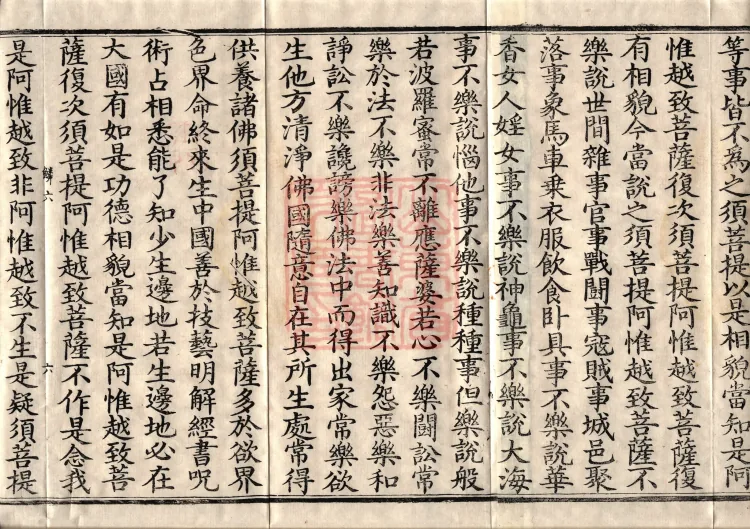 等事皆不為之須菩提以是相貌當知是阿
惟越致菩薩復次須菩提阿惟越致菩薩復
有相貌今當說之須菩提阿惟越致菩薩不
樂說世間雜事官事戰鬪事寇賊事城邑聚
落事象馬車乗衣服飲食卧具事不樂說華
香女人婬女事不樂說神龜事不樂說大海
事不樂說惱他事不樂說種種事但樂說般
若波羅蜜常不離應薩婆若心不樂鬪訟常
樂於法不樂非法樂善知識不樂怨惡樂和
諍訟不樂讒謗樂佛法中而得出家常樂欲
生他方清淨佛國隨意自在其所生處常得
供養諸佛須菩提阿惟越致菩薩多於欲界
色界命終來生中國善於技藝明解經書呪
術占相悉能了知少生邊地若生邊地必在
大國有如是功德相貌當知是阿惟越致菩
薩復次須菩提阿惟越致菩薩不作是念我
六
是阿惟越致非阿惟越致不生是疑須菩提